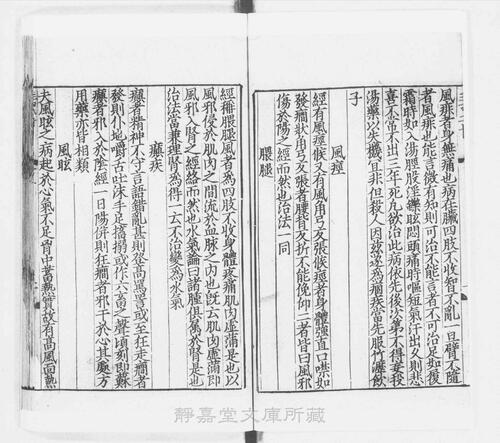 風痱者身無痛也病在臟四肢不收智不亂一旦臂不隨
者風痱也能言微有知則可治不能言者不可治足如履
霜時如入湯脛股淫鑠眩悶頭痛時嘔短氣汗出久則悲
喜不常不出三年死凡欲治此病依先後次第不得妄投
湯藥以失機宜非但殺人因茲遂為痼疾當先服竹瀝飲
子
風痙
經有風痙候又有風角弓反張候痙者身體強直口噤如
發癇狀角弓反張者腰背反折不能俛仰二者皆曰風邪
傷於陽之經而然也治法一同
腲腿
經稱腲腿風者為四肢不收身體疼痛肌肉虛滿是也以
風邪侵於肌肉之間流於血脈之內也既云肌肉虛滿即
風邪入腎之經絡而然也水氣論曰諸腫俱屬於腎是也
治法當兼理腎為得一云不治變為水氣
癲疾
癲者精神不守言語錯亂甚則登高罵詈或至狂走癇者
發則仆地嚼舌吐沫手足搐搦或作六畜之聲頃刻即蘇
癲者邪入於陰經一曰陽併則狂癇者邪干於心其處方
用藥亦皆相類
風眩
夫風眩之病起於心氣不足胷中蓄熱實故有高風面熱
靜嘉堂文庫所藏